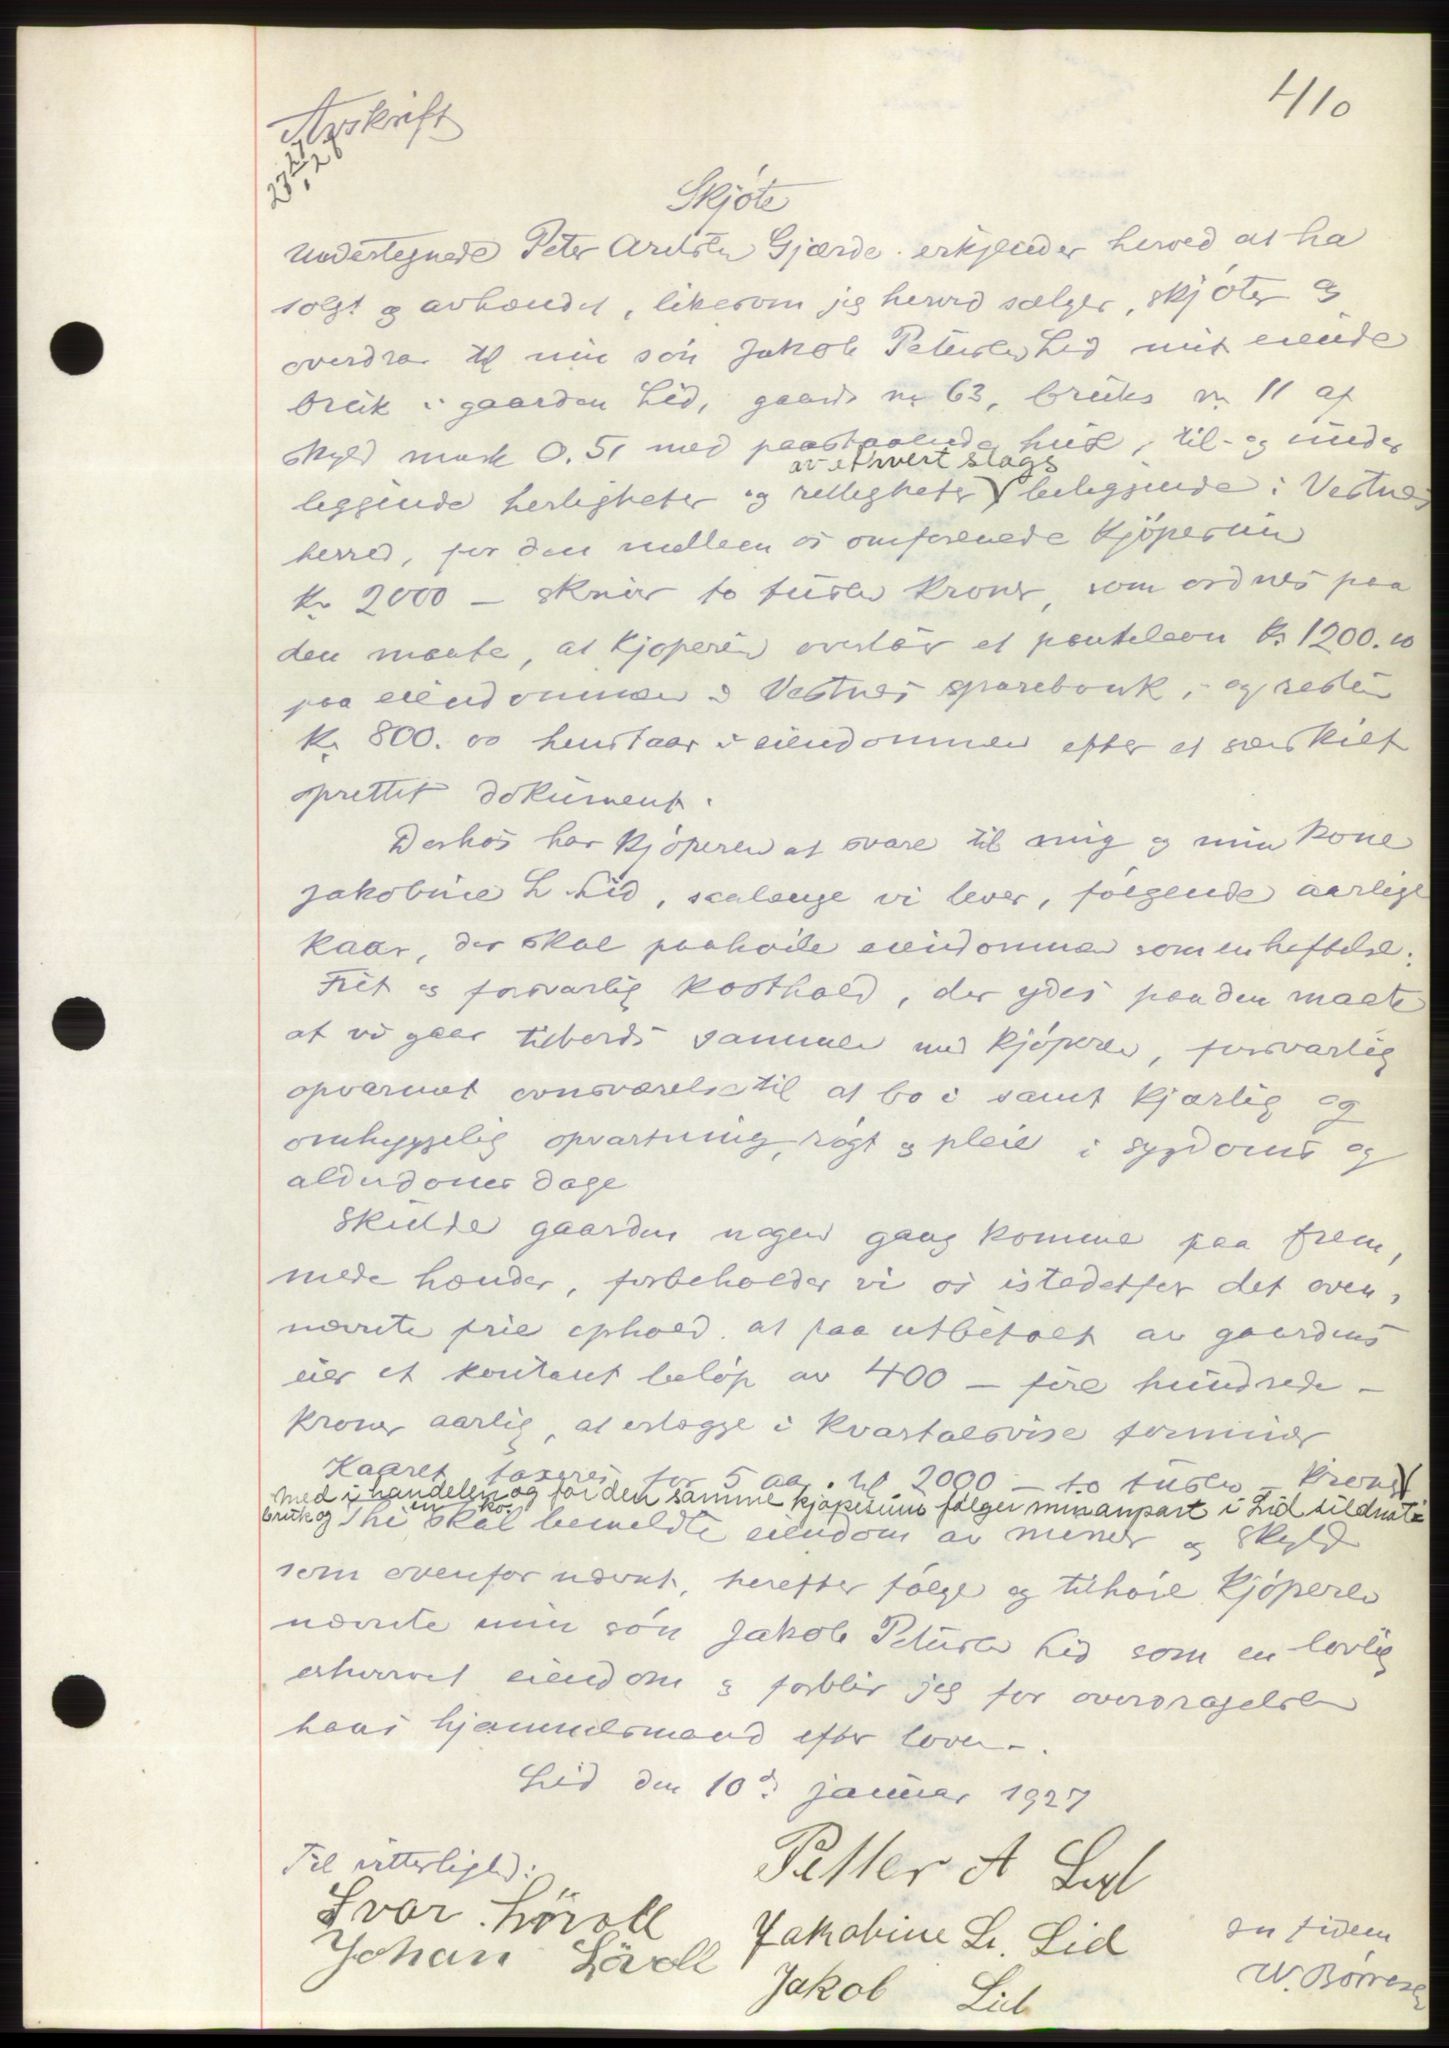 410
Avskrift
23 27/1 27
Skjøte
Undertegnede Peter Gjærde erkjender herved at ha
solgt og avhændet, likesom jeg herved sælger, skjøter og
overdrar til min søn Jakob Petersen Lid mit eiende
bruk i gaarden Lid, gaards nr 63, bruks nr 11 af
skyld mark 0.51 med paastaaende hus, til- og under
av ethvert slags
leggende herligheter og rettigheter beliggende i Vestnes
herred, for den mellem os omforenede kjøpesum
Kr 2000 – skriver to tusen kroner, som ordnes paa
den maate, at kjøperen overtar et pantelaan Kr 1200.00
paa eiendommen i Vestnes sparebank, og resten
Kr 800.00 henstaar i eiendommen efter et særskilt
oprettet dokument.
Derhos har kjøperen at svare til mig og min kone
Jakobine L Lid, saalenge vi lever, følgende aarlige
kaar, der skal paahvile eiendommen som en heftelse:
Frit og forsvarlig kosthold, der ydes paa den maate
at vi gaar tilbords sammen med kjøperen, forsvarlig
opvarmet ovnsværelse til at bo i samt kjærlig og
omhyggelig opvartning, røgt og pleie i sygdoms og
alderdoms dage
Skulde gaarden nogen gang komme paa frem,
mede hænder, forbeholder vi os istedetfor det oven,
nævnte frie ophold at faa utbetalt av gaardens
eier et kontant beløp av 400 – fire hundrede –
kroner aarlig, at erlægge i kvartalsvise terminer
Kaaret taxeres for 5 aar til 2000 – to tusen kroner
Med i handelen og for den samme kjøpesum følger min anpart i Lid sildnot=
bruk og en ko.
Thi skal bemeldte eiendom av numer og skyld
som ovenfor nævnt, herefter følge og tilhøre kjøperen
nævnte min søn Jakob Petersen Lid som en lovlig
erhvervet eiendom og forblir jeg for overdragelsen
hans hjemmelsmand efter loven.
Lid den 10d: januar 1927
Til vitterlighed:
Petter A Lid
Ivar Løvoll
Jakobine L. Lid
Johan Løvoll
Jakob Lid
in fidem
W. Børresen